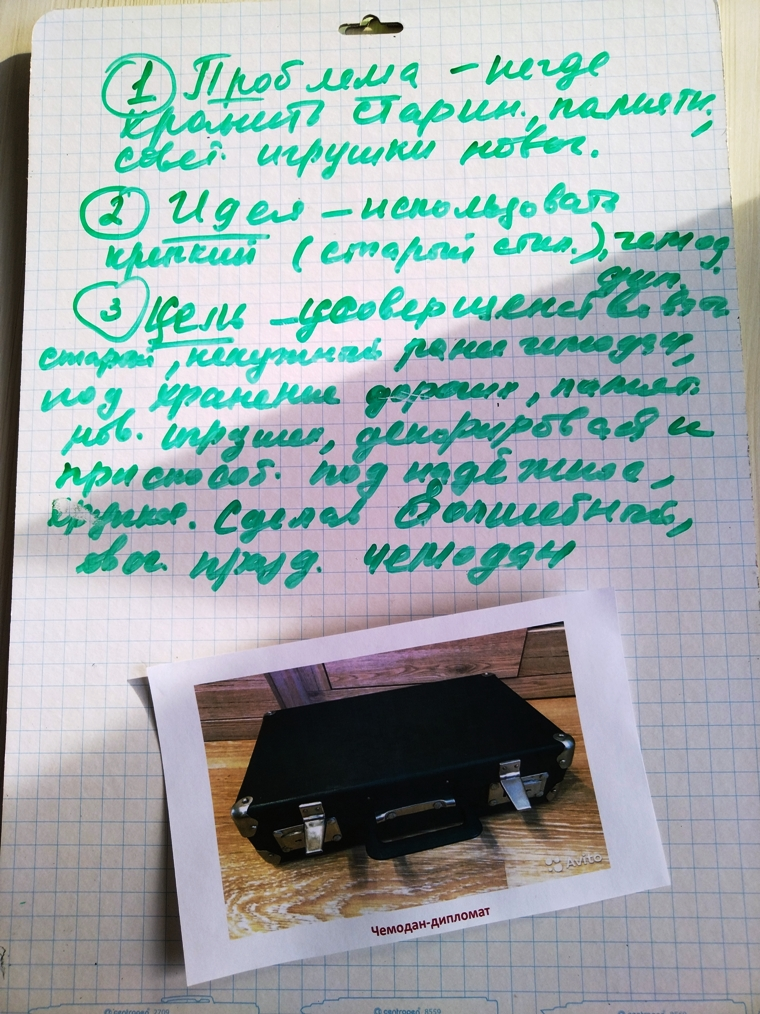 1 Проблема – негде
хранить старин., памятн.,
совет. игрушки новог.
2 Идея – использовать
крепкий (старый стил.), чемод.
дип.
3 Цель – усовершенствовать
старый, ненужный ранее чемодан,
под хранение дорогих, памят.
нов. игрушек, декорировав и
приспособ. под надёжное,
хрупкое. Сделав Волшебный,
новог. празд. чемодан
Avito
Чемодан-дипломат
centropen 8559